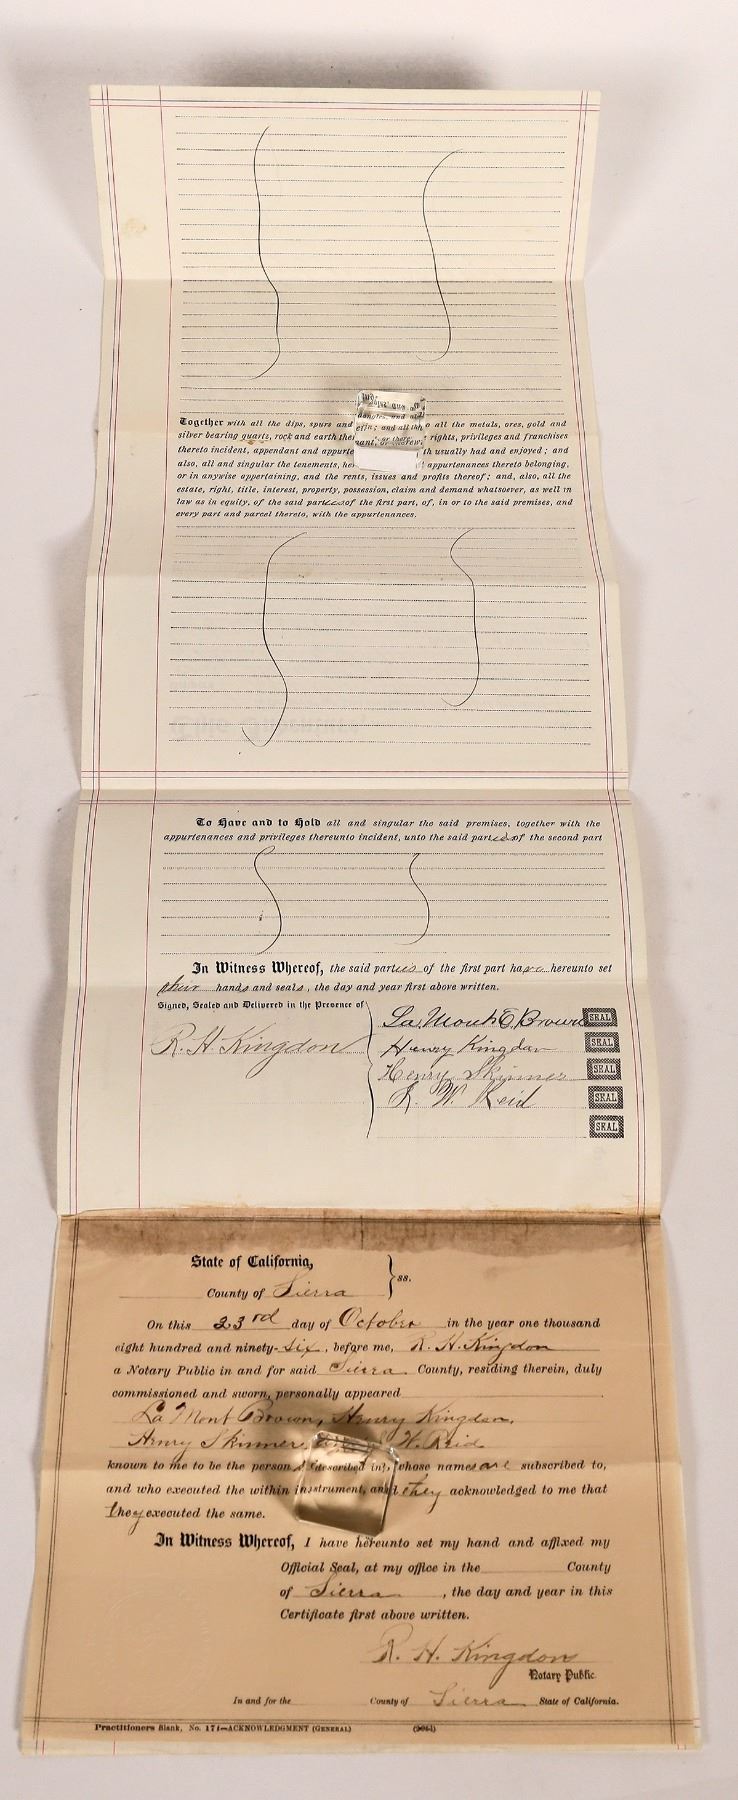 Together with all the dips, spurs and o all the metals, ores, gold and
silver bearing quartz, rock and earth the rights, privileges and franchises
thereto incident, appendant and appurte th usually had and enjoyed; and
also, all and singular the tenements, her appurtenances thereto belonging,
or in anywise appertaining, and the rents, issues and profits thereof; and, also, all the
estate, right, title, interest, property, possession, claim and demand whatsoever, as well in
law as in equity, of the said parties of the first part, of, in or to the said premises, and
every part and parcel thereto, with the appurtenances.
To Have and to Hold all and singular the said premises, together with the
appurtenances and privileges thereunto incident, unto the said parties of the second part
In Witness Whereof, the said parties of the first part have hereunto set
their hands and seals, the day and year first above written.
Signed, Sealed and Delivered in the Presence of
R. H. Kingdon
La Mont C. Brown SEAL
Henry Kingdon SEAL
Henry Skinner SEAL
W. Reid SEAL
SEAL
State of California,
County of Sierra } ss.
On this 23rd day of October in the year one thousand
eight hundred and ninety-six, before me, R. H. Kingdon
a Notary Public in and for said Sierra County, residing therein, duly
commissioned and sworn, personally appeared
La Mont Brown, Henry Kingdon,
Henry Skinner W. Reid
known to me to be the persons described in, whose names are subscribed to,
and who executed the within instrument, and they acknowledged to me that
they executed the same.
In Witness Whereof, I have hereunto set my hand and affixed my
Official Seal, at my office in the County
of Sierra, the day and year in this
Certificate first above written.
R. H. Kingdon
Notary Public
In and for the County of Sierra State of California.
Practitioners Blank, No. 171—ACKNOWLEDGMENT (GENERAL)